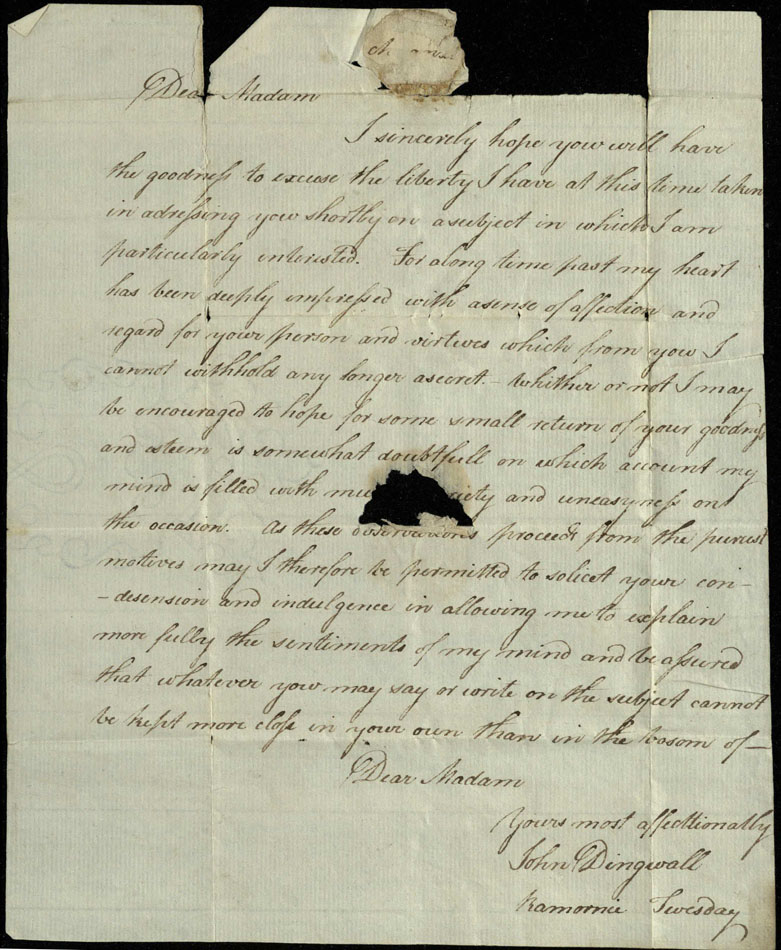 Dear Madam
I sincerely hope you will have
the goodness to excuse the liberty I have at this time taken
in adressing you shortly on a subject in which I am
particularly interested. For along time past my heart
has been deeply impressed with asense of affection and
regard for your person and virtues which from you I
cannot withhold any longer asecret.- Whither or not I may
be encouraged to hope for some small return of your goodness
and esteem is somewhat doubtfull on which account my
mind is filled with mu iety and uneasyness on
the occasion. As these observations proceed from the purest
motives may I therefore be permitted to solicet your con-
-desension and indulgence in allowing me to explain
more fully the sentiments of my mind and be assured
that whatever you may say or write on the subject cannot
be kept more close in your own than in the bosom of —
Dear Madam
Yours most affecttionally
John Dingwall
Ramornie Tuesday